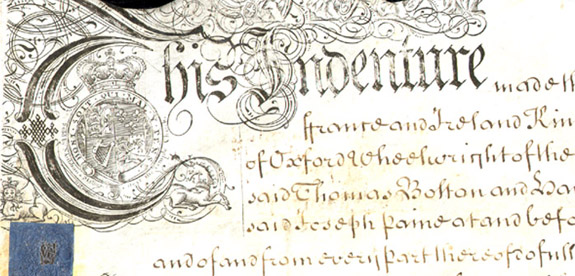 This Indenture made th
France and Ireland Kin
of Oxford Wheelwright of the
said Thomas Bolton and
said Joseph Paine at and befo
and of and from every part thereof do full